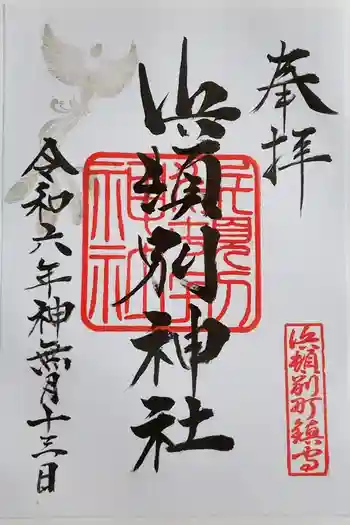 奉拝
浜頓別神社
令和六年神無月十三日
浜頓別町鎮守